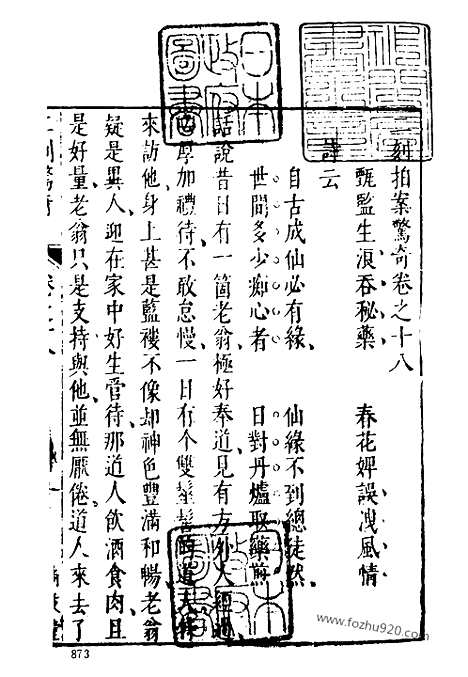 二刻拍案驚奇卷之十八
甄監生浪吞秘藥　春花婢誤洩風情
詩云
自古成仙必有緣　仙緣不到總徒然
世間多少痴心者　日對丹爐取藥煎
話說昔日有一箇老翁極好奉道見有方外人經過
必厚加禮待不敢怠慢一日有个雙髽髻的道人特
來訪他身上甚是藍褸不像却神色豐滿和暢老翁
疑是異人迎在家中好生管待那道人飲酒食肉且
是好量老翁只是支持與他並無厭倦道人來去了
二刻驚奇　卷之十八
日本
政府
圖書
www.fozhu920.com
873